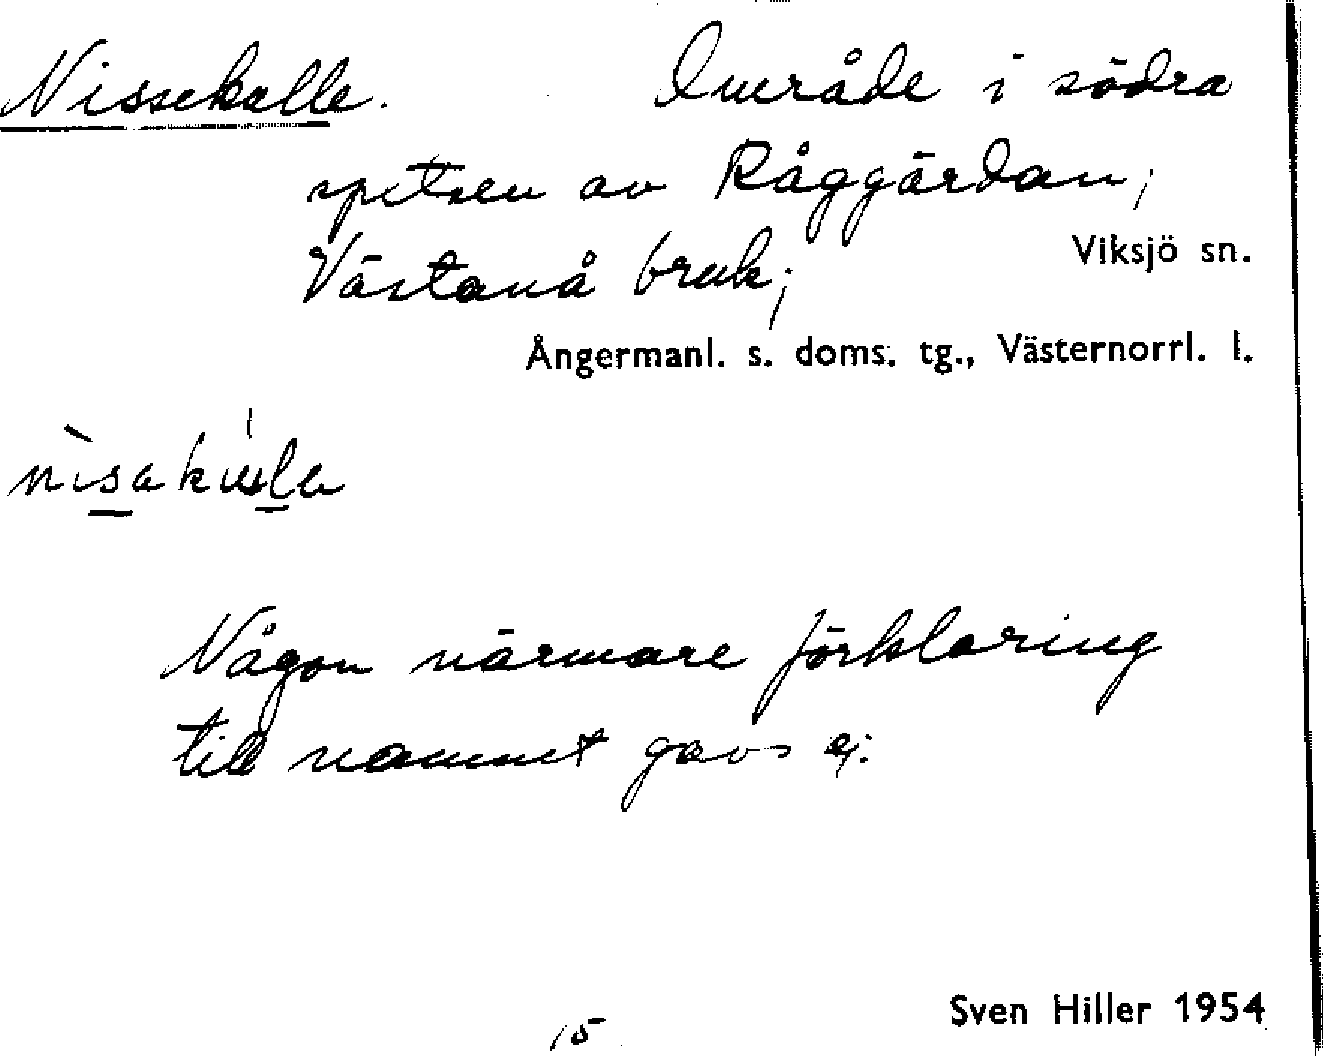 Nissekalle. Område i södra
spetsen av Råggärdan;
Västanå bruk; Viksjö sn.
Ångermanl. s. doms. tg., Västernorrl. l.
Någon närmare förklaring
till namnet gavs ej.
Sven Hiller 1954
15